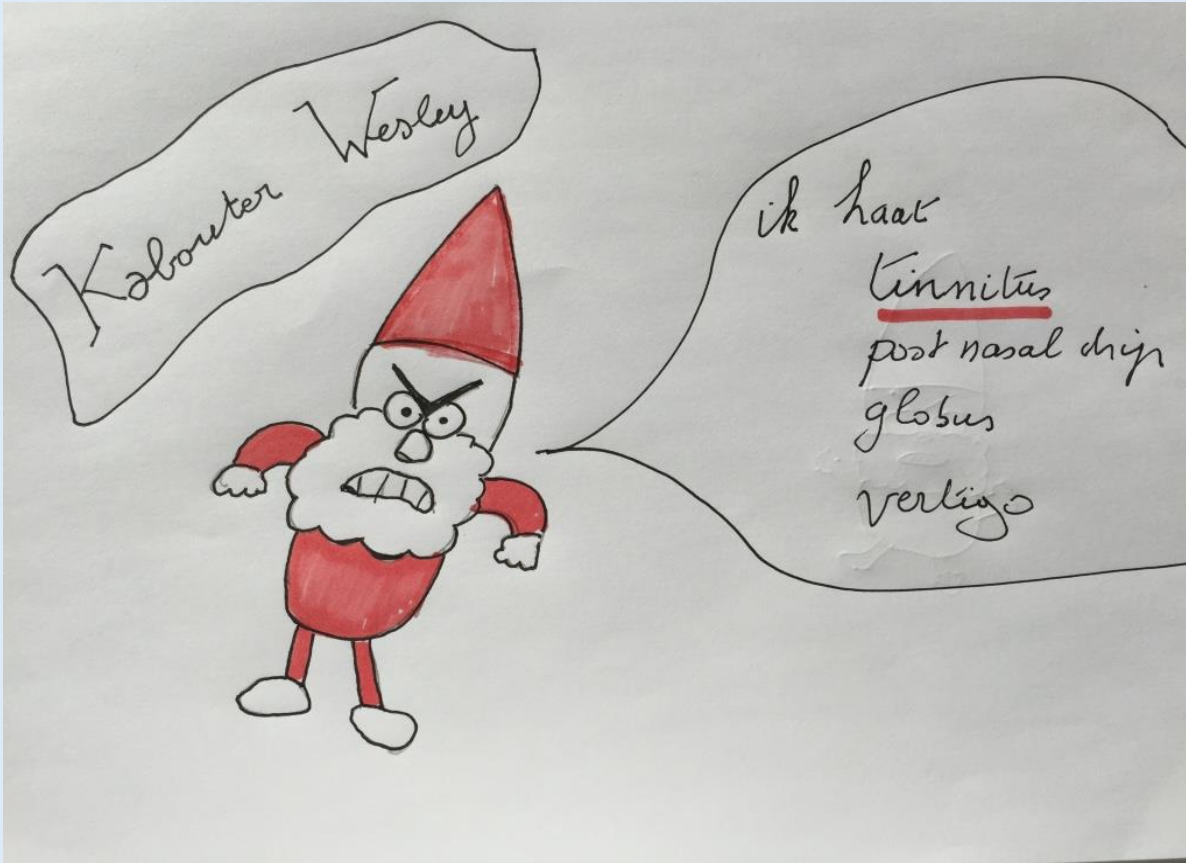 Kabouter Wesley
ik haat
tinnitus
post nasal drip
globus
vertigo